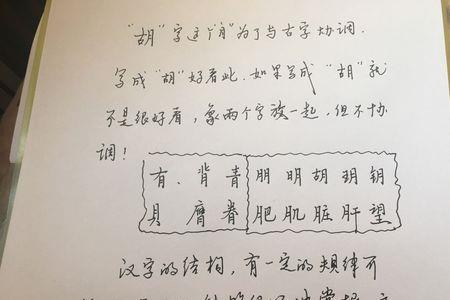 "胡"字这"月"为了与古字协调.
写成"胡"好看些.如果写成"胡"就
不是很好看,象两个字放一起,但不协
调!
有、背青 朋明胡玥钥
具 膺眷 肥肌脏肝望
汉字的结构,有一定的规律不